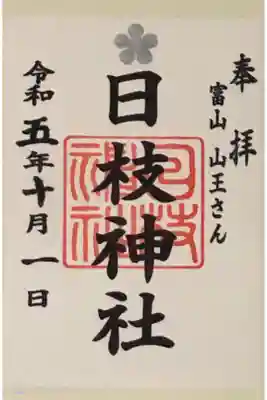 奉拝
富山 山王さん
日枝神社
令和五年十月一日
日枝神社